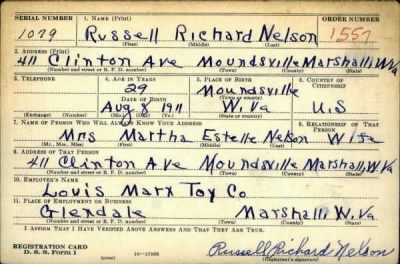 SERIAL NUMBER 1. NAME (Print) ORDER NUMBER
1079 Russell Richard Nelson 1557
(First) (Middle) (Last)
2. ADDRESS (Print)
411 Clinton Ave Moundsville Marshall W.Va
(Number and street or R. F. D. number) (Town) (County) (State)
3. TELEPHONE 4. AGE IN YEARS 5. PLACE OF BIRTH 6. COUNTRY OF CITIZENSHIP
29 Moundsville
DATE OF BIRTH (Town or county)
Aug 8 1911 W.Va U.S
(Exchange) (Number) (Mo.) (Day) (Yr.) (State or country)
7. NAME OF PERSON WHO WILL ALWAYS KNOW YOUR ADDRESS 8. RELATIONSHIP OF THAT PERSON
Mrs Martha Estelle Nelson Wife
(Mr., Mrs., Miss) (First) (Middle) (Last)
9. ADDRESS OF THAT PERSON
411 Clinton Ave Moundsville Marshall W.Va
(Number and street or R. F. D. number) (Town) (County) (State)
10. EMPLOYER'S NAME
Louis Marx Toy Co
11. PLACE OF EMPLOYMENT OR BUSINESS
Glendale Marshall W.Va
(Number and street or R. F. D. number) (Town) (County) (State)
I AFFIRM THAT I HAVE VERIFIED ABOVE ANSWERS AND THAT THEY ARE TRUE.
REGISTRATION CARD
D. S. S. Form 1 Russell Richard Nelson
(Registrant's signature)